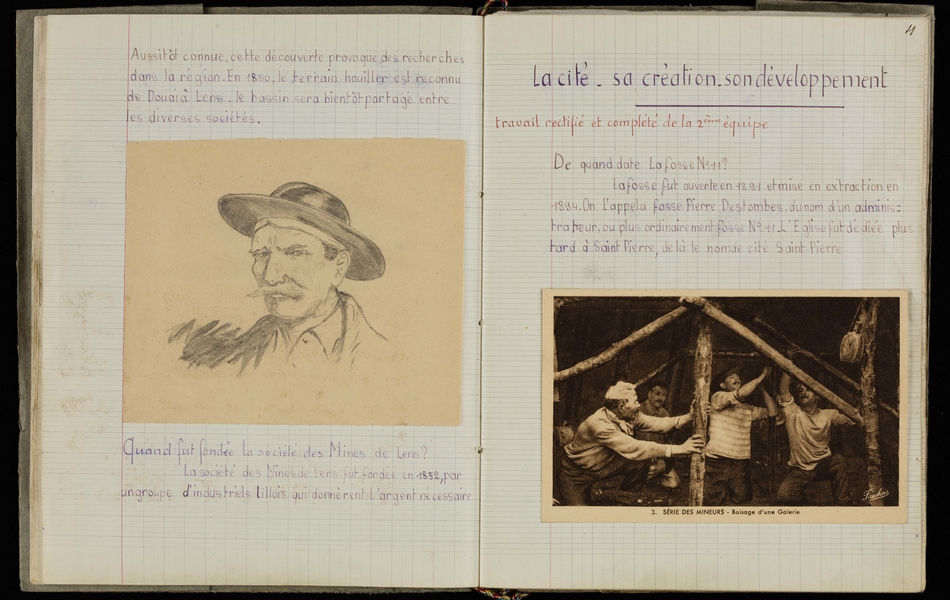 Aussitôt connue, cette découverte provoque des recherches
dans la région. En 1850, le terrain houiller est reconnu
de Douai à Lens. le bassin sera bientôt partagé entre
les diverses sociétés.
Quand fut fondée la société des Mines de Lens?
La société des Mines de Lens fut fondée en 1852, par
un groupe d'industriels lillois qui donnèrent l'argent nécessaire
11
La cité - sa création - son développement
travail rectifié et complété de la 2ème équipe
De quand date La fosse N° 11?
La fosse fut ouverte en 1891 et mise en extraction en
1894. On l'appela fosse Pierre Destombes, du nom d'un adminis=
trateur, ou plus ordinairement fosse N° 11. L'Eglise fut dédiée plus
tard à Saint Pierre, de là le nom de cité Saint Pierre
3. SÉRIE DES MINEURS - Boisage d'une Galerie